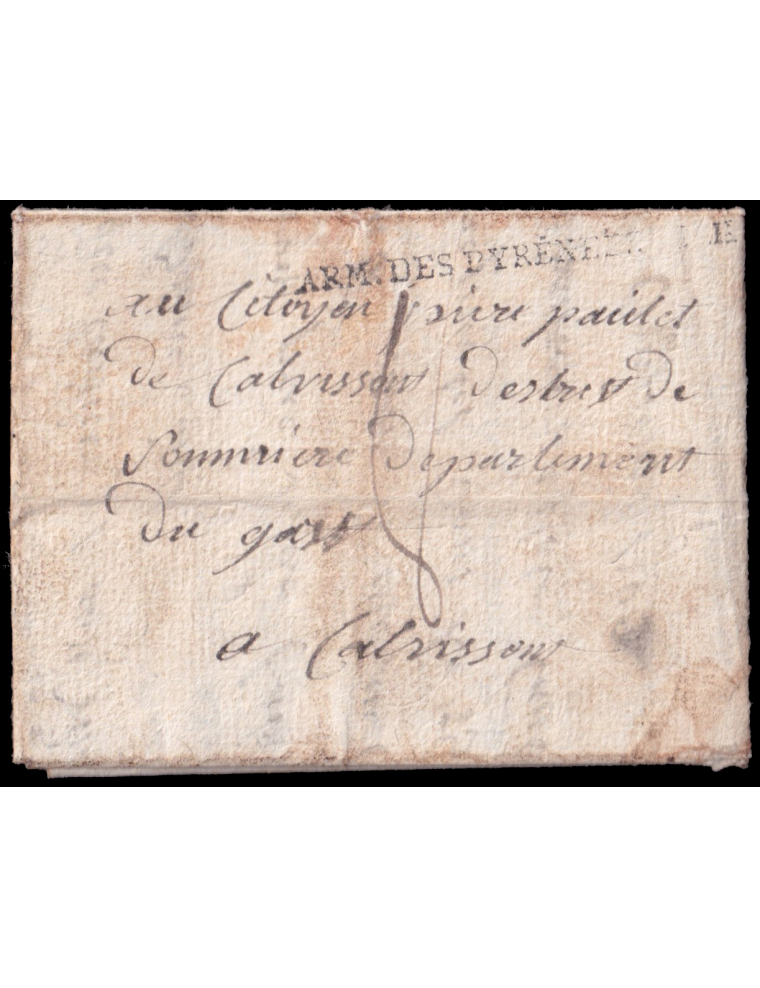 ARM. DES PYRÉNÉES
au Citoyen pierre paulet
de Calvissont destrest de
sommiere departement
du gart
a Calvissont